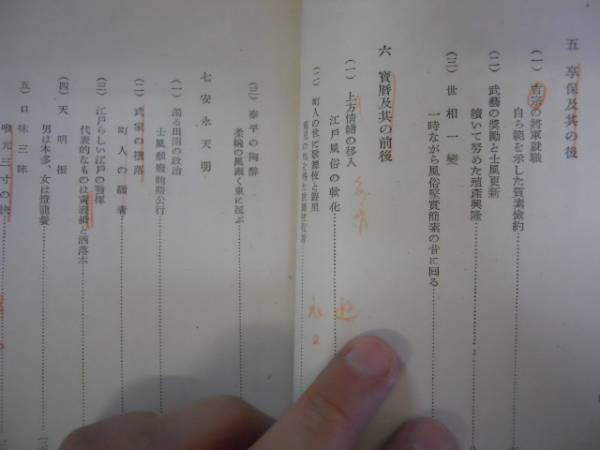 五 享保及其の後
(一) 吉宗の將軍就職
自ら範を示した質素儉約
(二) 武藝の奬勵と士風更新
續いて努めた殖產興隆
(三) 世相一變
一時ながら風俗堅實簡素の昔に回る
六 寶曆及其の前後
(一) 上方情緖の移入
江戸風俗の軟化
(二) 町人の世に歌舞伎と遊里
(三) 泰平の陶醉
柔婉の風漸く東に流ぶ
七 安永天明
(一) 濁る田沼の政治
士風頽廢賄賂公行
(二) 武家の墮落
町人の驕奢
(三) 江戸らしい江戸の發揮
代表的なものは黃表紙と洒落本
(四) 天明振
男は本多、女は燈籠鬢
(五) 口三味
喉元三寸の